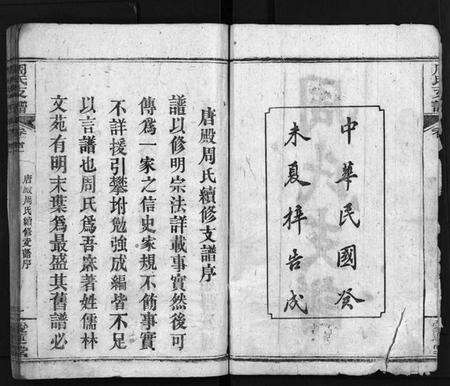 中華民國癸
未夏梓告成
周氏支譜
唐殿周氏續修支譜序
譜以修明宗法詳載事實然後可
傳爲一家之信史家規不飾事實
不詳援引攀坿勉強成編皆不足
以言譜也周氏爲吾寀著姓儒林
文苑有明末葉爲最盛其舊譜必
周氏支譜
唐殿周氏續修支譜序